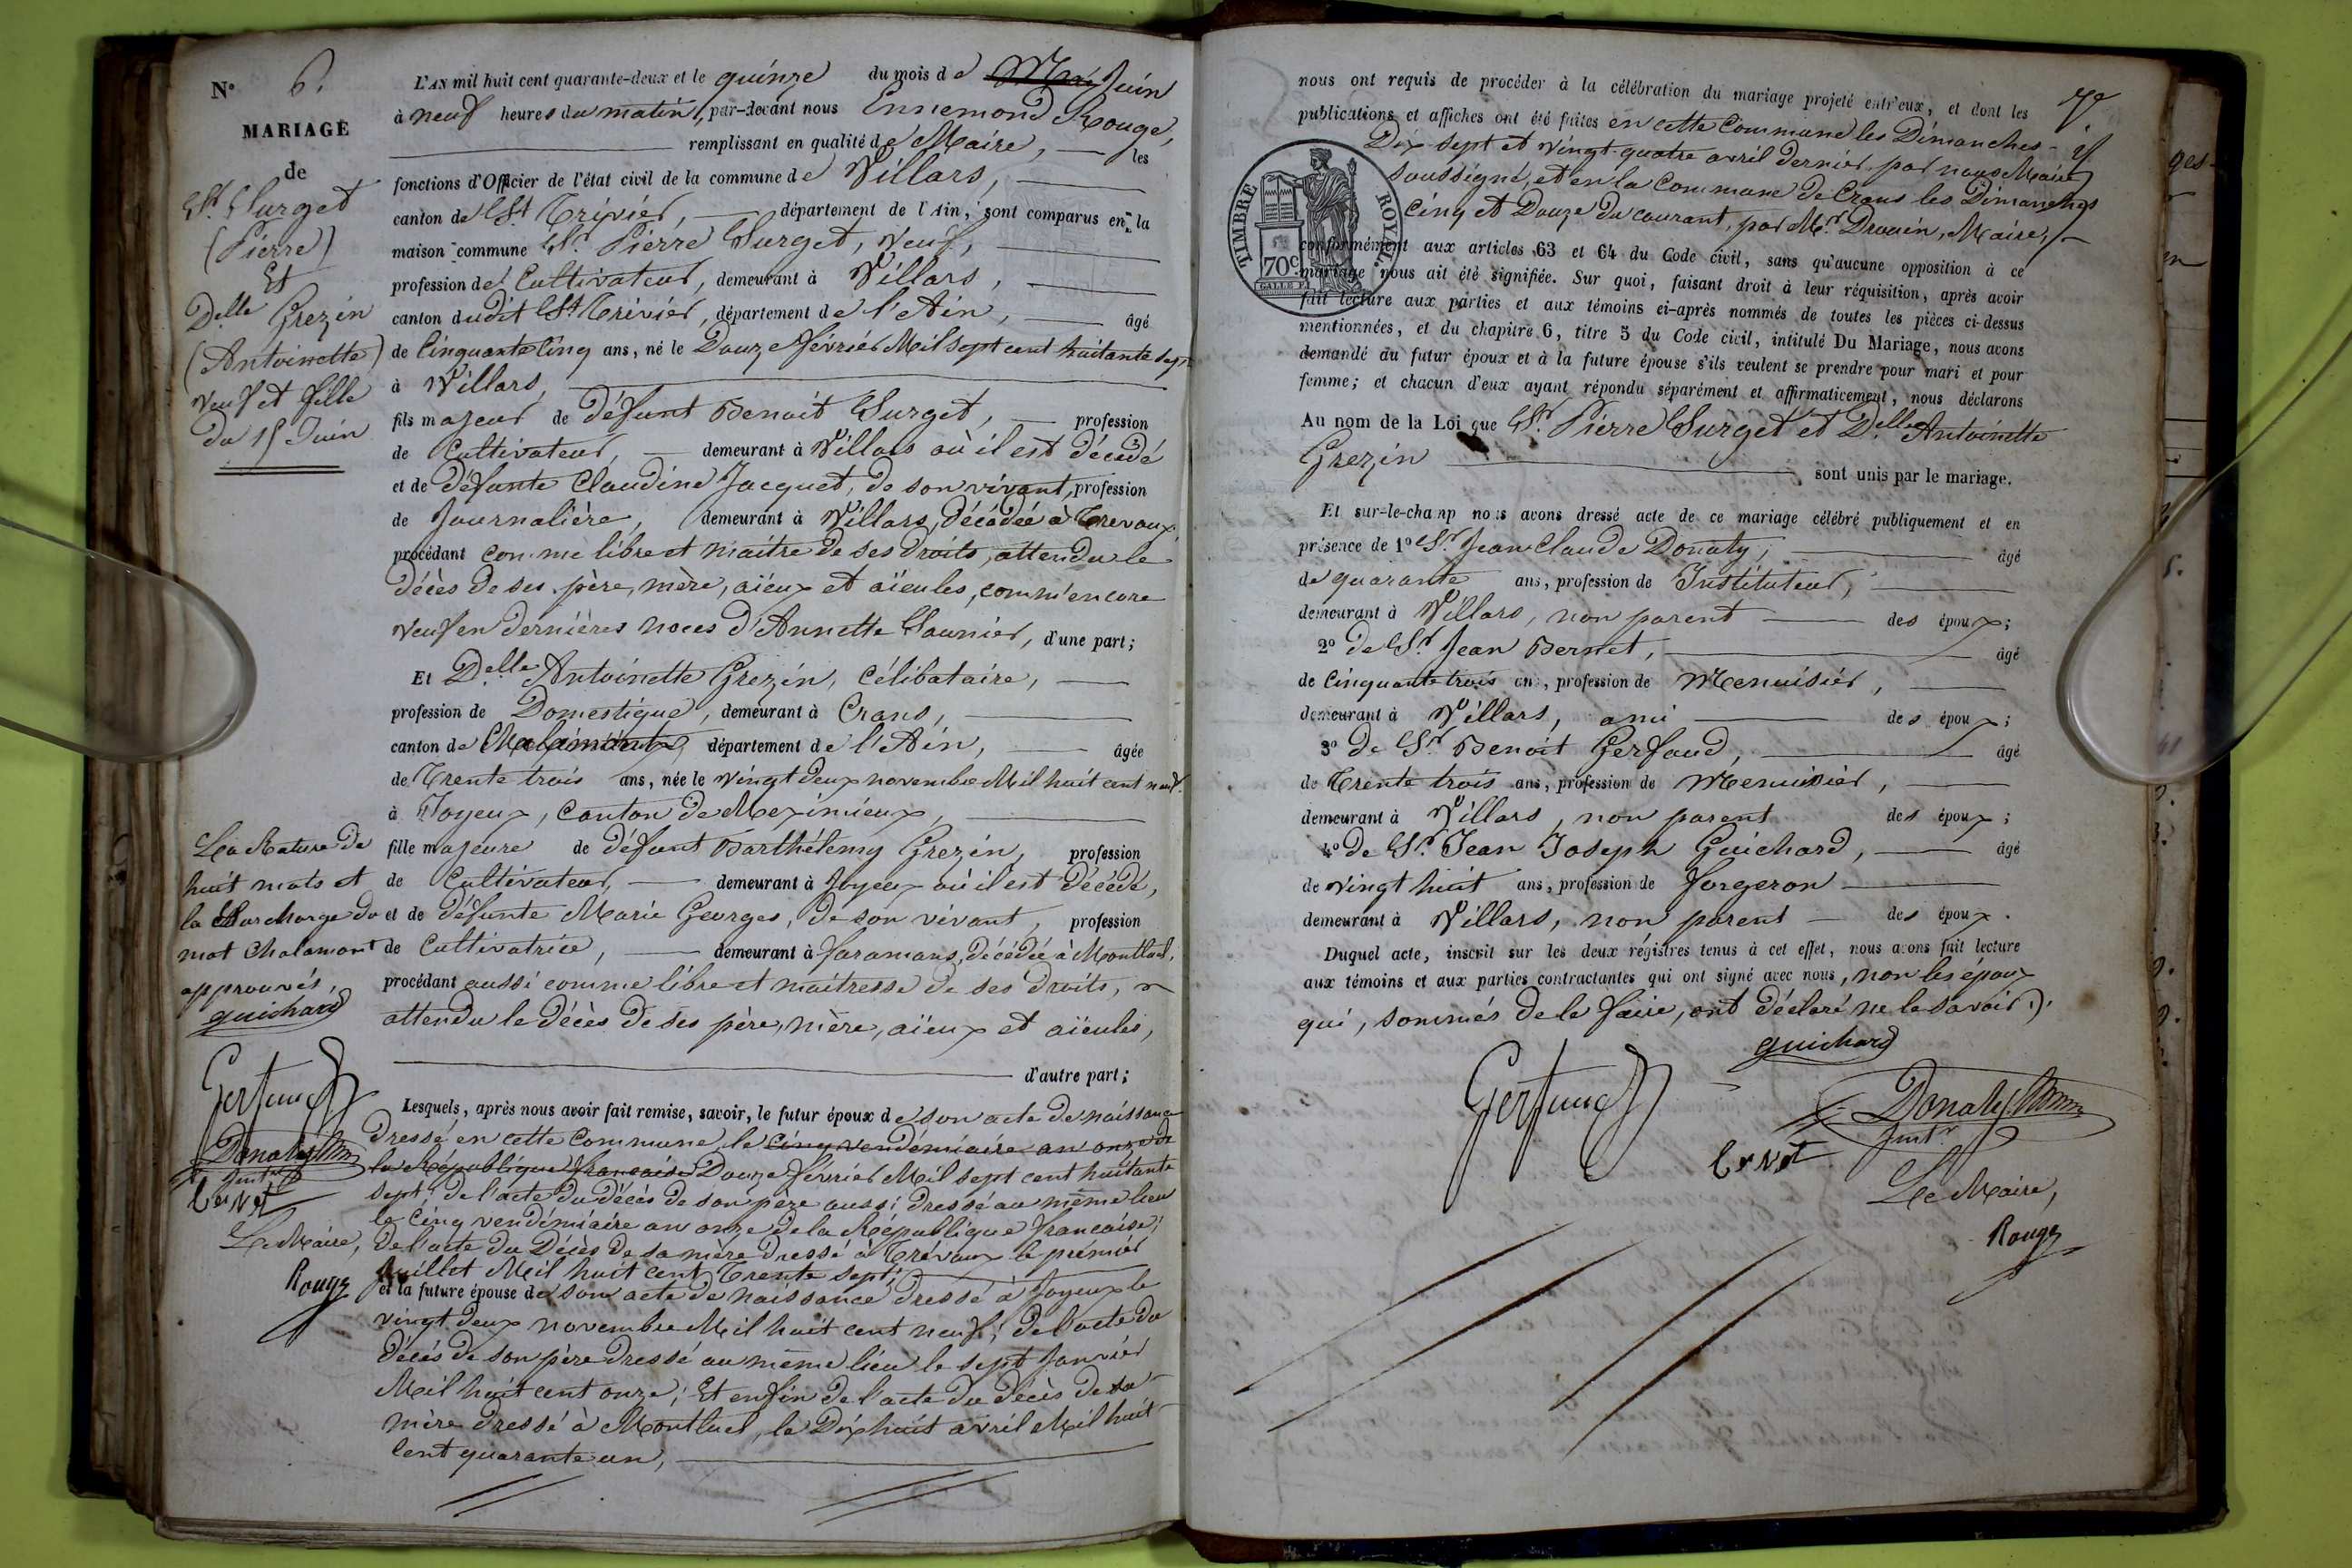 N° 6.
MARIAGE
de
Sr. Surget
(Pierre)
Et
Delle Grezin
(Antoinette)
veuf et fille
Du 15 Juin
L'AN mil huit cent quarante-deux et le quinze du mois de Mai Juin
à neuf heures du matin, par-devant nous Ennemond Rouge,
remplissant en qualité de Maire, les
fonctions d'Officier de l'état civil de la commune de Villars,
canton de St Trivier, département de l'Ain, sont comparus en la
maison commune Sr. Pierre Surget, veuf,
profession de Cultivateur, demeurant à Villars,
canton dudit St Trivier, département de l'Ain, âgé
de Cinquante Cinq ans, né le Douze février Mil sept cent huitante sept
à Villars,
fils majeur de défunt Benoit Surget, profession
de Cultivateur, demeurant à Villars où il est décédé
et de défunte Claudine Jacquet, de son vivant, profession
de Journalière, demeurant à Villars, décédée à Trevoux
procédant comme libre et maitre de ses droits, attendu le
décès de ses père, mère, aïeux et aïeules, comm'encore
veuf en dernières noces d'Annette Saunier, d'une part;
Et Delle Antoinette Grezin, célibataire,
profession de Domestique, demeurant à Crans,
canton de Chalamont, département de l'Ain, âgée
de Trente trois ans, née le vingt deux novembre Mil huit cent neuf
à Joyeux, Canton de Meximieux,
fille majeure de défunt Barthélemy Grezin, profession
de Cultivateur, demeurant à Joyeux où il est décédé,
et de défunte Marie Georges, de son vivant, profession
de Cultivatrice, demeurant à faramans, décédée à Montluel,
procédant aussi comme libre et maitresse de ses droits,
attendu le décès de ses père, mère, aïeux et aïeules,
d'autre part;
La Rature de
huit mots et
la Surcharge du
mot Chalamont
approuvés,
guichard
Gerfaud
Donaty
Instr
bernet
Le Maire,
Rouge
Lesquels, après nous avoir fait remise, savoir, le futur époux de son acte de naissance
dressé en cette Commune, le cinq vendémiaire an onze de
la République française Douze février Mil sept cent huitante
sept; de l'acte du décès de son père aussi dressé au même lieu
le cinq vendémiaire an onze de la République française;
de l'acte du Décès de sa mère dressé à Trévoux le premier
Juillet Mil huit cent Trente sept;
et la future épouse de son acte de naissance dressé à Joyeux le
vingt deux novembre Mil huit cent neuf; de l'acte du
décès de son père dressé au même lieu le sept Janvier
Mil huit cent onze; Et enfin de l'acte du décès de sa
mère dressé à Montluel, le Dix huit avril Mil huit
Cent quarante un,
nous ont requis de procéder à la célébration du mariage projeté entr'eux, et dont les
publications et affiches ont été faites en cette Commune les Dimanches
Dix-sept et vingt-quatre avril dernier par nous Maire
soussigné, et en la Commune de Crans les Dimanches
Cinq et Douze du courant, par Mr. Drouin, Maire,
TIMBRE ROYAL
70c
conformément aux articles 63 et 64 du Code civil, sans qu'aucune opposition à ce
mariage nous ait été signifiée. Sur quoi, faisant droit à leur réquisition, après avoir
fait lecture aux parties et aux témoins ci-après nommés de toutes les pièces ci-dessus
mentionnées, et du chapitre 6, titre 5 du Code civil, intitulé Du Mariage, nous avons
demandé au futur époux et à la future épouse s'ils veulent se prendre pour mari et pour
femme; et chacun d'eux ayant répondu séparément et affirmativement, nous déclarons
Au nom de la Loi que Sr. Pierre Surget et Delle Antoinette
Grezin sont unis par le mariage.
Et sur-le-champ nous avons dressé acte de ce mariage célébré publiquement et en
présence de 1° Sr. Jean Claude Donaty, âgé
de quarante ans, profession de Instituteur,
demeurant à Villars, non parent des époux;
2° de Sr. Jean Bernet, âgé
de Cinquante trois ans, profession de Menuisier,
demeurant à Villars, ami des époux;
3° de Sr Benoit Gerfaud, âgé
de Trente trois ans, profession de Menuisier,
demeurant à Villars, non parent des époux;
4° de Sr. Jean Joseph Guichard, âgé
de vingt huit ans, profession de forgeron
demeurant à Villars, non parent des époux.
Duquel acte, inscrit sur les deux régistres tenus à cet effet, nous avons fait lecture
aux témoins et aux parties contractantes qui ont signé avec nous, non les époux
qui, sommés de le faire, ont déclaré ne le savoir.
guichard
Gerfaud
Donaty
Instr
bernet
Le Maire,
Rouge